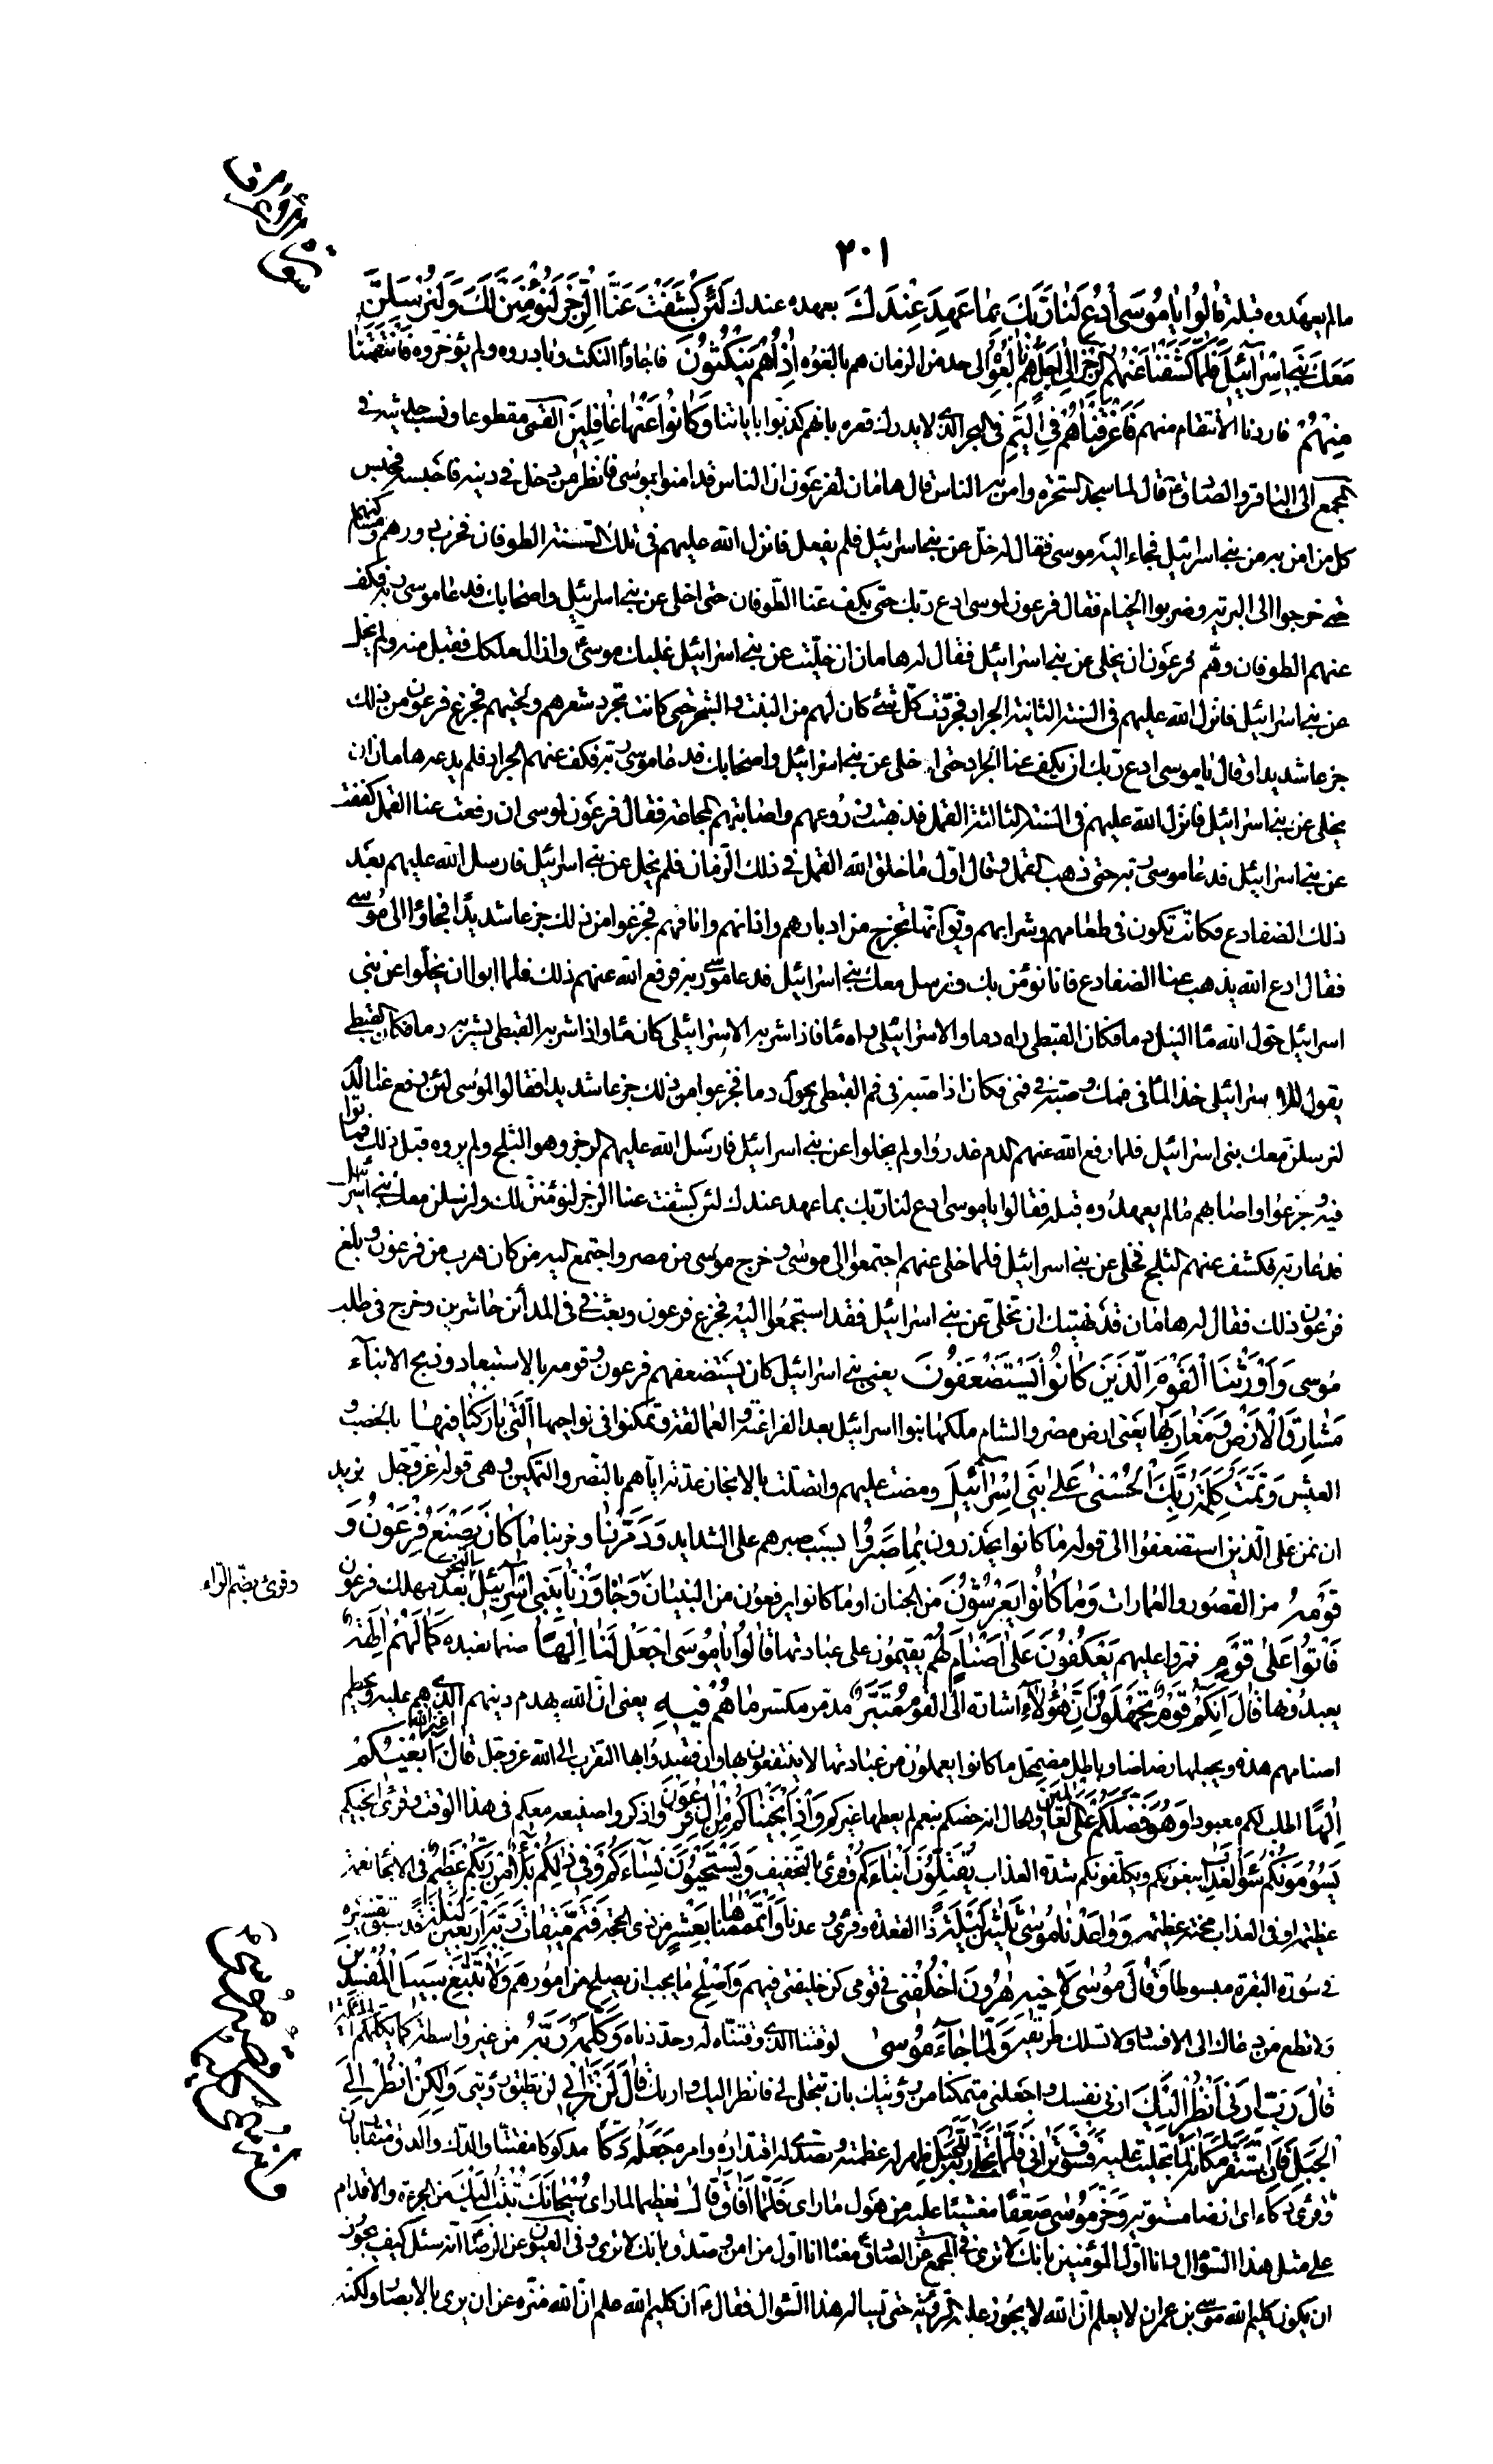 سورة الاعراف
٢٠١
ما لم يعهدوه قبله قالُوا يا مُوسَى ادْعُ لَنا رَبَّكَ بِما عَهِدَ عِنْدَكَ بعهده عندك لَئِنْ كَشَفْتَ عَنَّا الرِّجْزَ لَنُؤْمِنَنَّ لَكَ وَلَنُرْسِلَنَّ
مَعَكَ بَنِي اِسْرائيلَ فَلَمّا كَشَفْنا عَنْهُمُ الرِّجْزَ اِلى اَجَلٍ هُمْ بالِغُوهُ الى حد من الزمان هم بالغوه اِذا هُمْ يَنْكُثُونَ فاجاؤا النكث وبادروه ولم يؤخروه فَانْتَقَمْنا
مِنْهُمْ فاردنا الانتقام منهم فَاَغْرَقْناهُمْ فِي الْيَمِّ في البحر الذي لا يدرك قعره بانهم كذبوا باياتنا وَكانُوا عَنْها غافِلِينَ القمى مقطوعا ونسب حديثه في
المجمع الى الباقر والصادق ع قال لما سجد السحرة وامن به الناس قال هامان لفرعون ان الناس قد امنوا بموسى فانظر من دخل في دينه فاحبسه فحبس
كل من امن به من بنى اسرائيل فجاء اليه موسى فقال له خل عن بنى اسرائيل فلم يفعل فانزل الله عليهم في تلك السنة الطوفان فخرب دورهم ومساكنهم
حتى خرجوا الى البرية وضربوا الخيام فقال فرعون لموسى ادع ربك حتى يكف عنا الطوفان حتى اخلى عن بنى اسرائيل واصحابك فدعا موسى ربه فكف
عنهم الطوفان وهم فرعون ان يخلى عن بنى اسرائيل فقال له هامان ان خليت عن بنى اسرائيل غلبك موسى وازال ملكك فقبل منه ولم يخل
عن بنى اسرائيل فانزل الله عليهم في السنة الثانية الجراد فجردت كل شئ كان لهم من النبت والشجر حتى كانت تجرد شعرهم ولحيتهم فجزع فرعون من ذلك
جزعا شديدا وقال يا موسى ادع ربك ان يكف عنا الجراد حتى اخلى عن بنى اسرائيل واصحابك فدعا موسى ربه فكف عنهم الجراد فلم يدعه هامان ان
يخلى عن بنى اسرائيل فانزل الله عليهم في السنة الثالثة القمل فذهبت زروعهم واصابتهم المجاعة فقال فرعون لموسى ان رفعت عنا القمل كففت
عن بنى اسرائيل فدعا موسى ربه حتى ذهب القمل وقال اول ما خلق الله القمل في ذلك الزمان فلم يخل عن بنى اسرائيل فارسل الله عليهم بعد
ذلك الضفادع فكانت تكون في طعامهم وشرابهم ويق انها تخرج من ادبارهم واذانهم وانافهم فجزعوا من ذلك جزعا شديدا فجاؤا الى موسى
فقال ادع الله يذهب عنا الضفادع فانا نؤمن بك ونرسل معك بنى اسرائيل فدعا موسى ربه فرفع الله عنهم ذلك فلما ابوا ان يخلوا عن بنى
اسرائيل حول الله ماء النيل دما فكان القبطى راه دما والاسرائيلى راه ماء فاذا شربه الاسرائيلى كان ماء واذا شربه القبطى يشربه دما فكان القبطى
يقول للاسرائيلى خذ الماء في فمك وصبه في فمى فكان اذا صبه في فم القبطى يحول دما فجزعوا من ذلك جزعا شديدا فقالوا لموسى لئن رفع عنا الدم
لنرسلن معك بنى اسرائيل فلما رفع الله عنهم الدم غدروا ولم يخلوا عن بنى اسرائيل فارسل الله عليهم الرجز وهو الثلج ولم يروه قبل ذلك فماتوا
فيه وجزعوا واصابهم ما لم يعهدوه قبله فقالوا يا موسى ادع لنا ربك بما عهد عندك لئن كشفت عنا الرجز لنؤمنن لك ولنرسلن معك بنى اسرائيل
فدعا ربه فكشف عنهم الثلج فخلى عن بنى اسرائيل فلما خلى عنهم اجتمعوا الى موسى وخرج موسى من مصر واجتمع اليه من كان هرب من فرعون وبلغ
فرعون ذلك فقال له هامان قد نهيتك ان تخلى عن بنى اسرائيل فقد استجمعوا اليه فجزع فرعون وبعث في المدائن حاشرين وخرج في طلب
موسى وَاَوْرَثْنَا الْقَوْمَ الَّذِينَ كانُوا يُسْتَضْعَفُونَ يعنى بنى اسرائيل كان يستضعفهم فرعون وقومه بالاستبعاد وذبح الابناء
مَشارِقَ الْاَرْضِ وَمَغارِبَها يعنى ارض مصر والشام ملكها بنوا اسرائيل بعد الفراعنة والعمالقة وتمكنوا في نواحيها الَّتِي بارَكْنا فِيها بالخصب و
العيش وَتَمَّتْ كَلِمَةُ رَبِّكَ الْحُسْنى عَلى بَنِي اِسْرائيلَ ومضت عليهم واتصلت بالانجاز عدته اياهم بالنصر والتمكين وهى قوله عز وجل نريد
ان نمن على الذين استضعفوا الى قوله ما كانوا يحذرون بِما صَبَرُوا بسبب صبرهم على الشدايد وَدَمَّرْنا وخربنا ما كانَ يَصْنَعُ فِرْعَوْنُ وَ
قَوْمُهُ من القصور والعمارات وَما كانُوا يَعْرِشُونَ من الجنان او ما كانوا يرفعون من البنيان وَجاوَزْنا بِبَنِي اِسْرائيلَ الْبَحْرَ بعد مهلك فرعون
وقرئ بضم الراء
فَاَتَوْا عَلى قَوْمٍ فمروا عليهم يَعْكُفُونَ عَلى اَصْنامٍ لَهُمْ يقيمون على عبادتها قالُوا يا مُوسَى اجْعَلْ لَنا اِلهًا صنما نعبده كَما لَهُمْ الِهَةٌ
يعبدونها قالَ اِنَّكُمْ قَوْمٌ تَجْهَلُونَ اِنَّ هؤُلاءِ اشارة الى القوم مُتَبَّرٌ مدمر مكسر ما هُمْ فِيهِ يعنى ان الله يهدم دينهم الذى هم عليه ويحطم
اصنامهم هذه ويجعلها رضاضا وباطل مضمحل ما كانوا يعملون من عبادتها لا ينتفعون بها وان قصدوا بها التقرب الى الله عز وجل قالَ اَغَيْرَ اللهِ اَبْغِيكُمْ
اِلهًا اطلب لكم معبودا وَهُوَ فَضَّلَكُمْ عَلَى الْعالَمِينَ والحال انه خصكم بنعم لم يعطها غيركم وَاِذْ اَنْجَيْناكُمْ مِنْ الِ فِرْعَوْنَ واذكروا صنيعه معكم في هذا الوقت وقرئ انجيكم
يَسُومُونَكُمْ سُوءَ الْعَذابِ يبغونكم ويكلفونكم شدة العذاب يُقَتِّلُونَ اَبْناءَكُمْ وقرئ بالتخفيف وَيَسْتَحْيُونَ نِساءَكُمْ وَفِي ذلِكُمْ بَلاءٌ مِنْ رَبِّكُمْ عَظِيمٌ في الانجاء نعمة
عظيمة او في العذاب محنة عظيمة وَواعَدْنا مُوسى ثَلثِينَ لَيْلَةً ذا القعدة وقرئ وعدنا وَاَتْمَمْناها بِعَشْرٍ من ذى الحجة فَتَمَّ مِيقاتُ رَبِّهِ اَرْبَعِينَ لَيْلَةً قد سبق تفسيره
في سورة البقرة مبسوطا وَقالَ مُوسى لِاَخِيهِ هرُونَ اخْلُفْنِي فِي قَوْمِي كن خليفتى فيهم وَاَصْلِحْ ما يجب ان يصلح من امورهم وَلا تَتَّبِعْ سَبِيلَ الْمُفْسِدِينَ
ولا تطع من دعاك الى الافساد ولا تسلك طريقه وَلَمّا جاءَ مُوسى لِمِيقاتِنا لوقتنا الذى وقتناه له وحددناه وَكَلَّمَهُ رَبُّهُ من غير واسطة كما يكلم الملائكة
قالَ رَبِّ اَرِنِي اَنْظُرْ اِلَيْكَ ارنى نفسك واجعلنى متمكنا من رؤيتك بان تتجلى لى فانظر اليك واريك قالَ لَنْ تَرانِي لن تطيق رؤيتى وَلكِنِ انْظُرْ اِلَى
الْجَبَلِ فَاِنِ اسْتَقَرَّ مَكانَهُ لما تجليت عليه فَسَوْفَ تَرانِي فَلَمّا تَجَلّى رَبُّهُ لِلْجَبَلِ ظهر له عظمته وتصدى له اقتداره وامره جَعَلَهُ دَكًّا مدكوكا مفتتا والدك والدق متقاربان
وقرئ دكاء اى ارضا مستوية وَخَرَّ مُوسى صَعِقًا مغشيا عليه من هول ما راى فَلَمّا اَفاقَ قالَ تعظيما لما راى سُبْحانَكَ تُبْتُ اِلَيْكَ من الجرءة والاقدام
على مثل هذا السؤال وانا اول المؤمنين بانك لا ترى في المجمع عن الصادق ع معناه انا اول من امن وصدق بانك لا ترى وفى العيون عن الرضا ع انه سئل كيف يجوز
ان يكون كليم الله موسى بن عمران لا يعلم ان الله لا يجوز عليه الرؤية حتى يسأله هذا السؤال فقال ع ان كليم الله علم ان الله منزه عن ان يرى بالابصار ولكنه